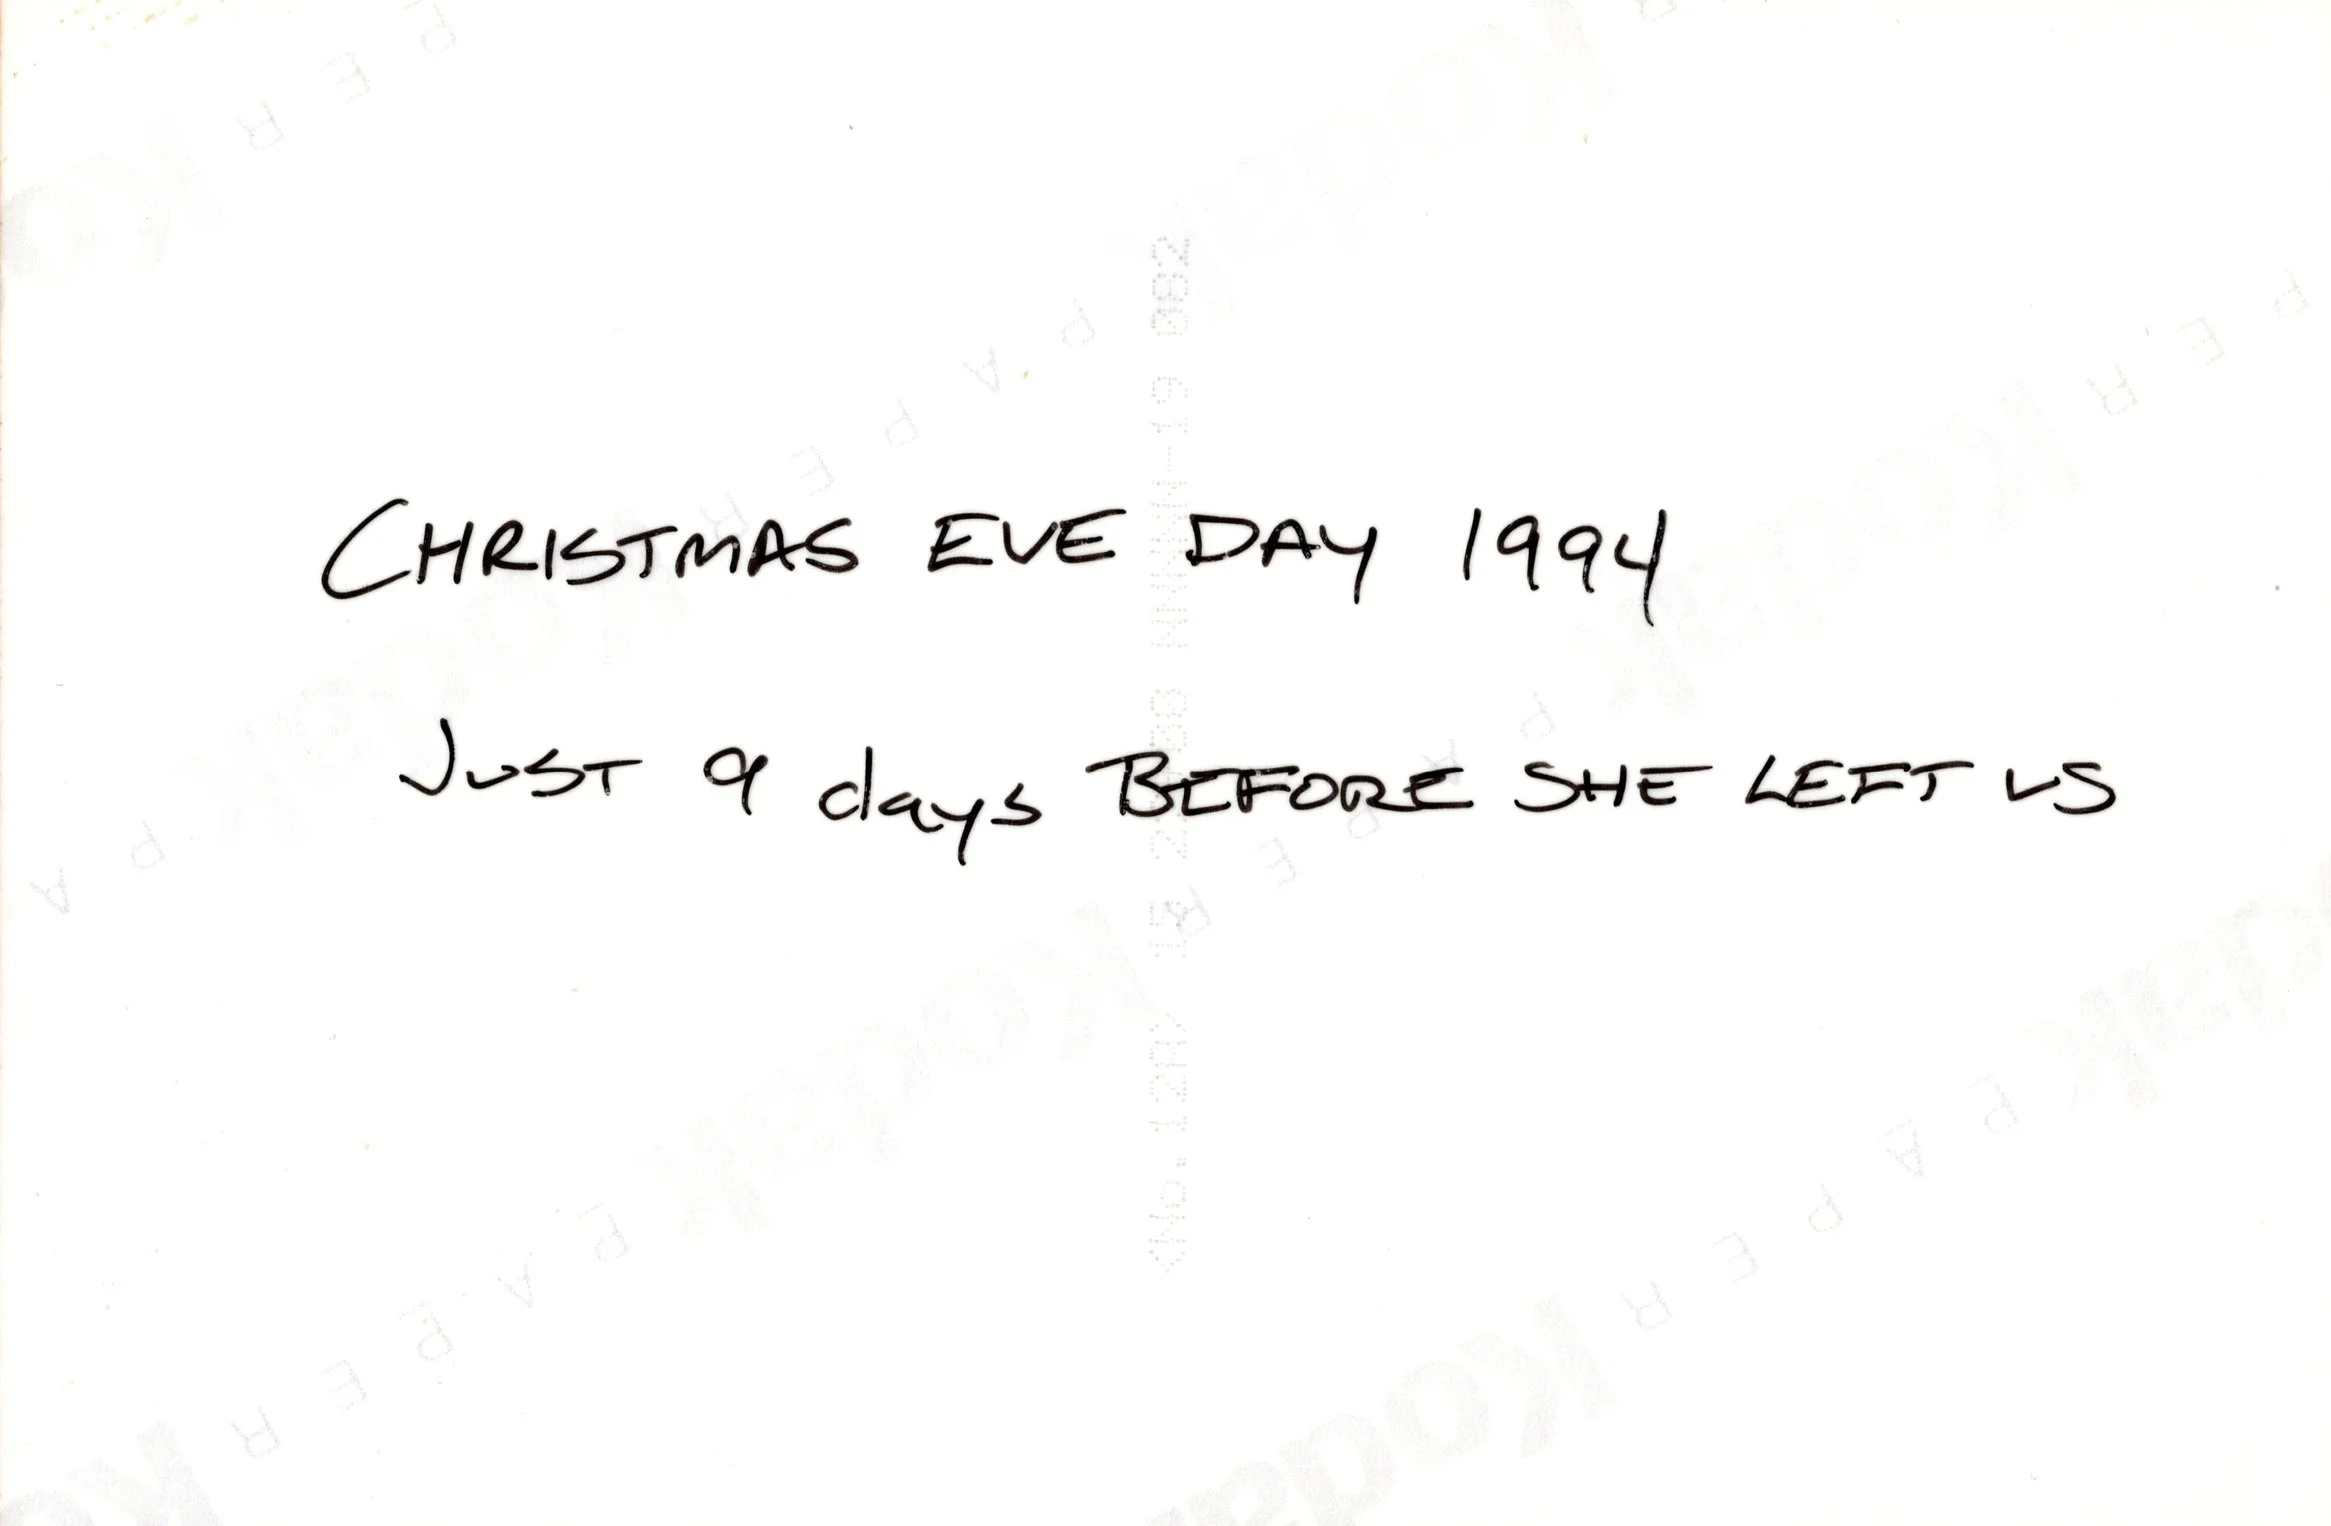 CHRISTMAS EVE DAY 1994
JUST 9 days BEFORE SHE LEFT US
Kodak
PAPER